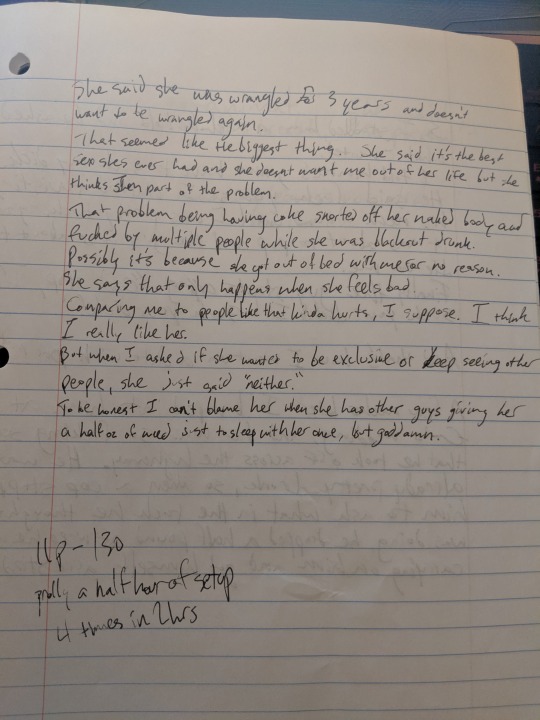 She said she was wrangled for 3 years and doesn't
want to be wrangled again.
That seemed like the biggest thing. She said it's the best
sex shes ever had and she doesnt want me out of her life but she
thinks I'm part of the problem.
That problem being having coke snorted off her naked body and
fucked by multiple people while she was blackout drunk.
Possibly it's because she got out of bed with me for no reason.
She says that only happens when she feels bad.
Comparing me to people like that kinda hurts, I suppose. I think
I really like her.
But when I asked if she wanted to be exclusive or keep seeing other
people, she just said "neither."
To be honest I can't blame her when she has other guys giving her
a half oz of weed just to sleep with her once, but goddamn.
11p - 130
prolly a half hour of setup
4 times in 2 hrs